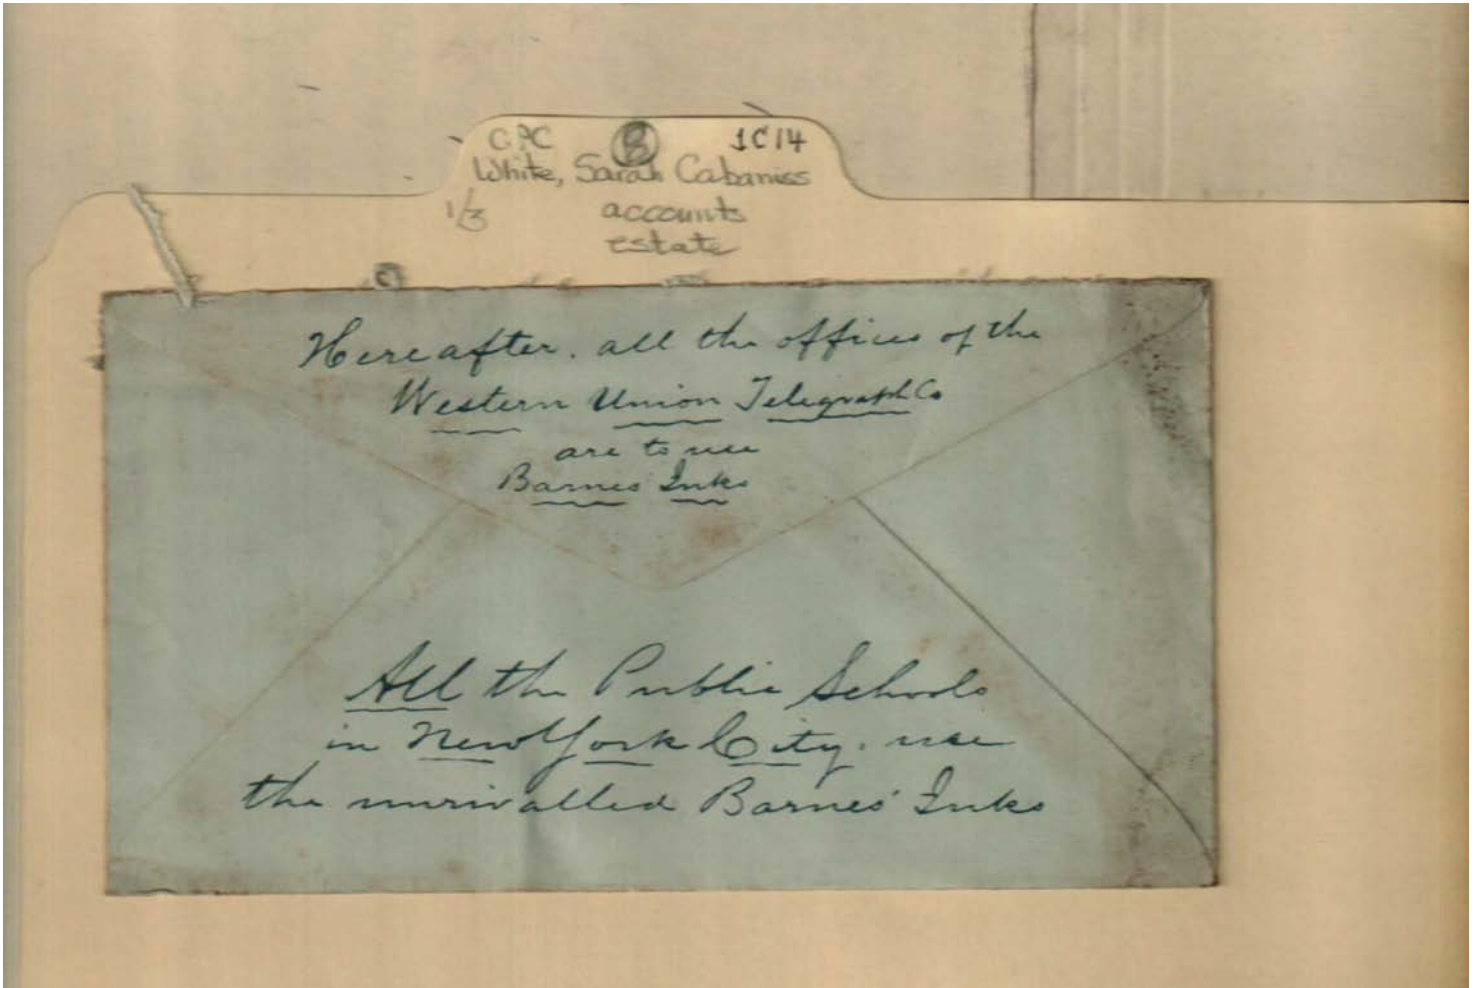 CPC B 1C14
White, Sarah Cabaniss
1/3 accounts
estate
Hereafter. all the offices of the
Western Union Telegraph Co
are to use
Barnes' Inks
All the Public Schools
in New York City. use
the unrivalled Barnes' Inks